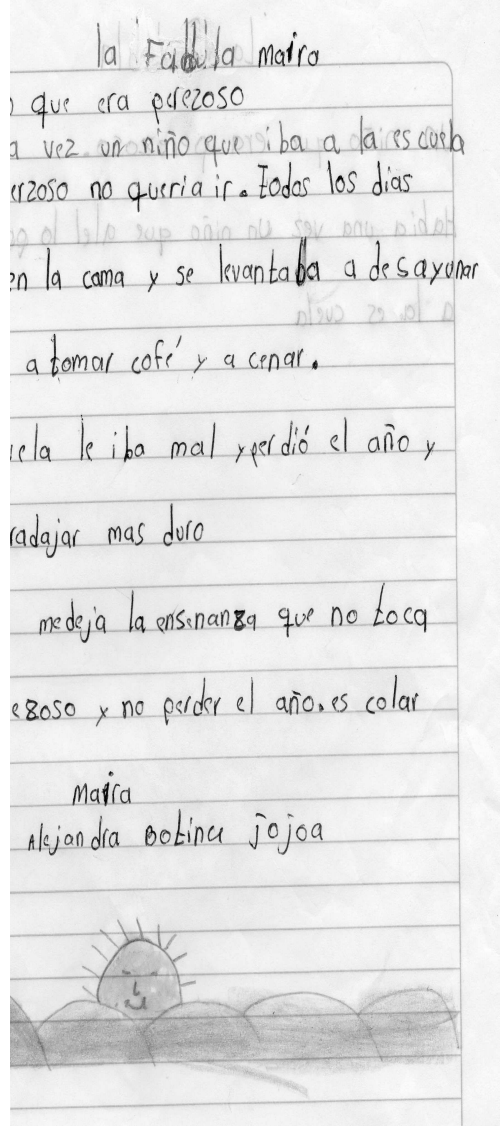 la Fabula maira
que era perezoso
a vez un niño que iba a la es cuela
erzoso no queria ir. todos los dias
en la cama y se levantaba a desayunar
a tomar cofé y a cenar.
uela le iba mal y perdió el año y
radajar mas duro
me deja la ensenanza que no toca
ezoso y no perder el año. es colar
Maira
Alejandra Botina jojoa